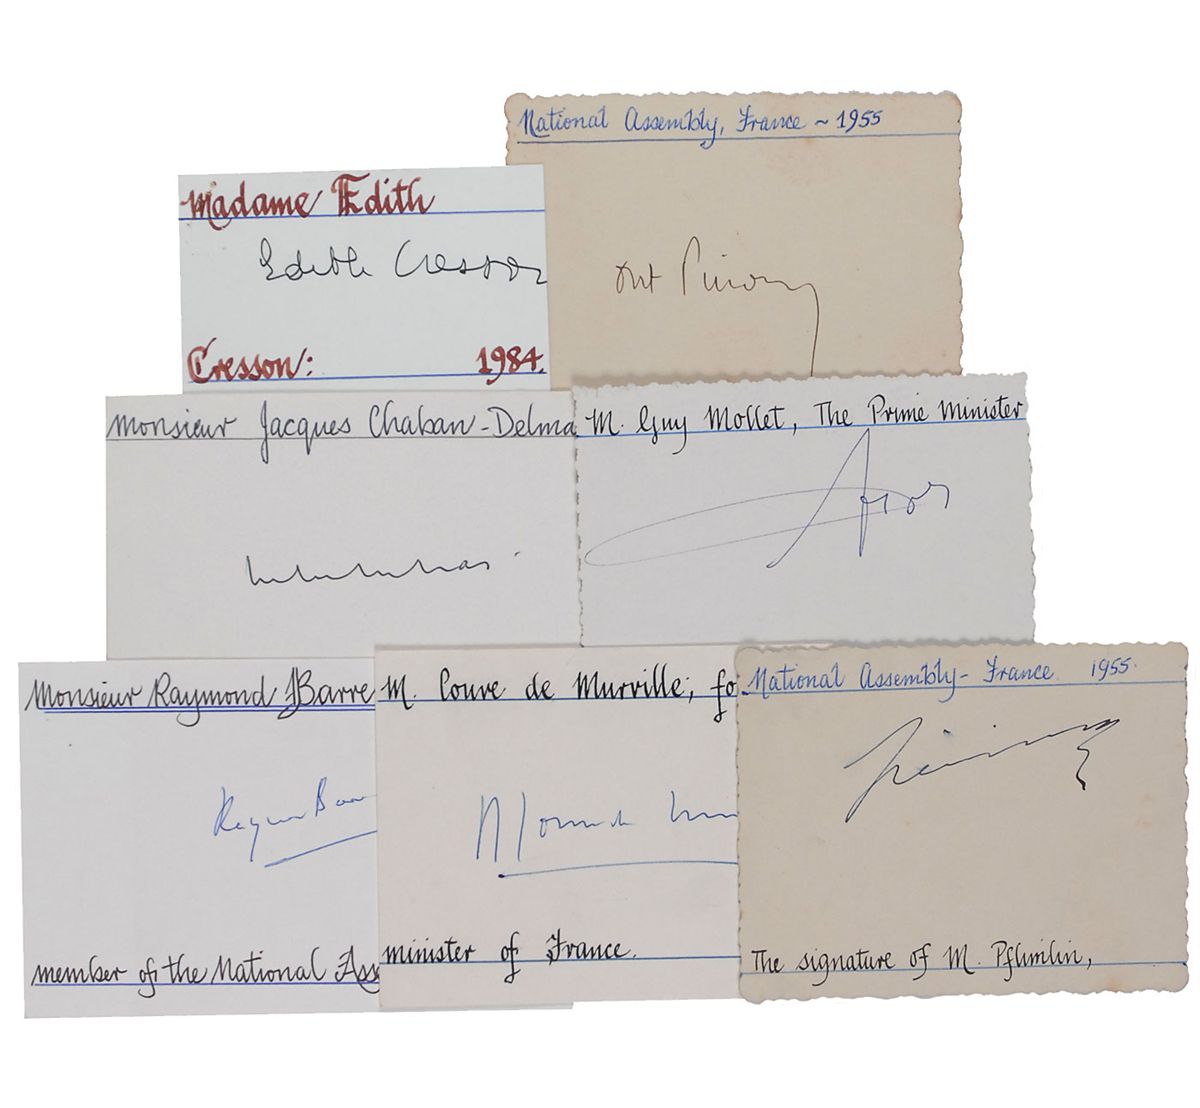 National Assembly, France ~ 1955
Madame Edith
Edith Cresson
Cresson: 1984.
Monsieur Jacques Chaban-Delma
M. Guy Mollet, The Prime Minister
Monsieur Raymond Barre
M. Couve de Murville, fo
National Assembly - France 1955.
member of the National Ass
minister of France.
The signature of M. Pflimlin,